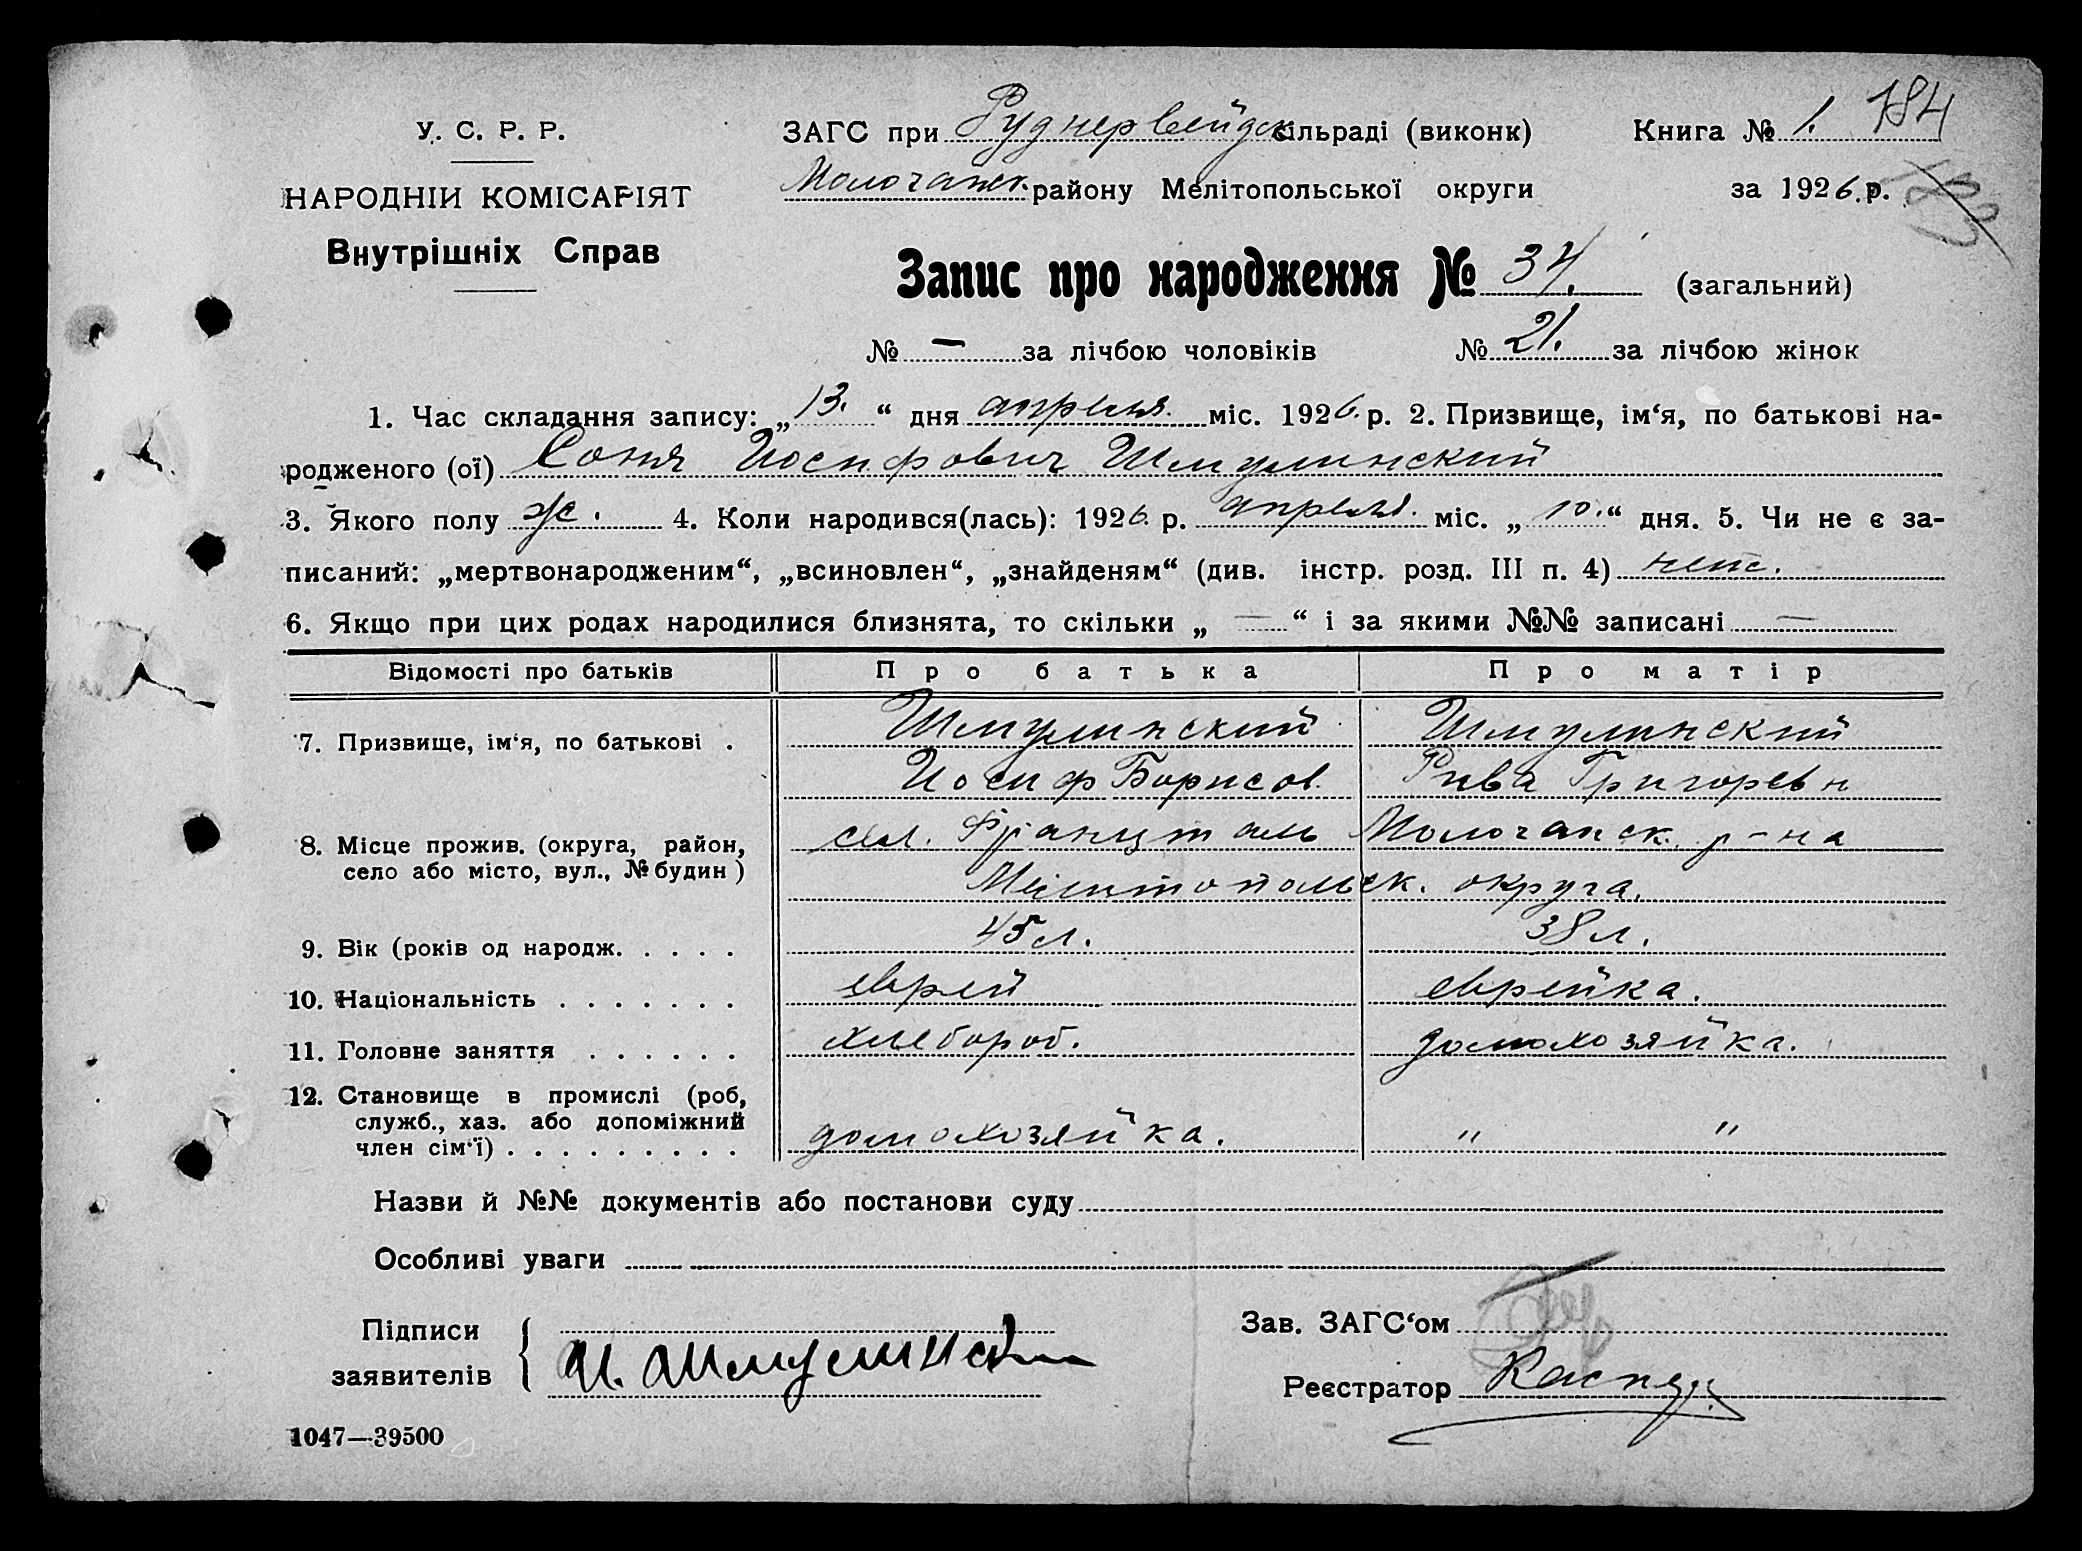 У. С. Р. Р.
НАРОДНІЙ КОМІСАРІЯТ
Внутрішніх Справ
ЗАГС при Руднервейдск сільраді (виконк) Книга № 1. 184
Молочанск. району Мелітопольської округи за 1926. р.
Запис про народження № 34. (загальний)
№ — за лічбою чоловіків № 21. за лічбою жінок
1. Час складання запису: „13.“ дня апреля. міс. 1926. р. 2. Призвище, ім‘я, по батькові на-
родженого (ої) Соня Иосифович Шмулинский
3. Якого полу ж. 4. Коли народився(лась): 1926. р. апреля. міс. „10.“ дня. 5. Чи не є за-
писаний: „мертвонародженим“, „всиновлен“, „знайденям“ (див. інстр. розд. III п. 4) нет.
6. Якщо при цих родах народилися близнята, то скільки „ — “ і за якими №№ записані —
Відомості про батьків Про батька Про матір
7. Призвище, ім‘я, по батькові . Шмулинский Шмулинский
Иосиф Борисов. Рива Григоревн
8. Місце прожив. (округа, район, село або місто, вул., № будин ) сел. Францталь Молочанск. р-на
Мелитопольск. округа.
9. Вік (років од народж. . . . . 45 л. 38 л.
10. Національність . . . . . . . еврей еврейка.
11. Головне заняття . . . . . . хлебороб. домохозяйка.
12. Становище в промислі (роб,
служб., хаз. або допоміжний
член сім‘ї) . . . . . . . . . домохозяйка. " "
Назви й №№ документів або постанови суду
Особливі уваги
Підписи
заявителів И. Шмулинский
Зав. ЗАГС‘ом
Реєстратор Каспер
1047—39500